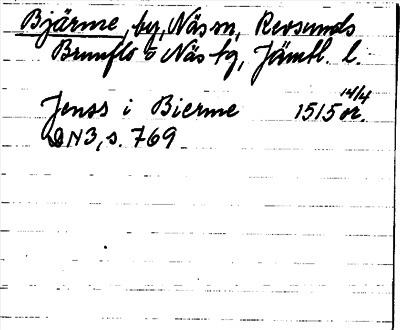 Bjärme, by, Näs sn, Revsunds
Brunflo o Näs tg, Jämtl. l.
14/4
Jenss i Bierme 1515 or.
DN3, s. 769